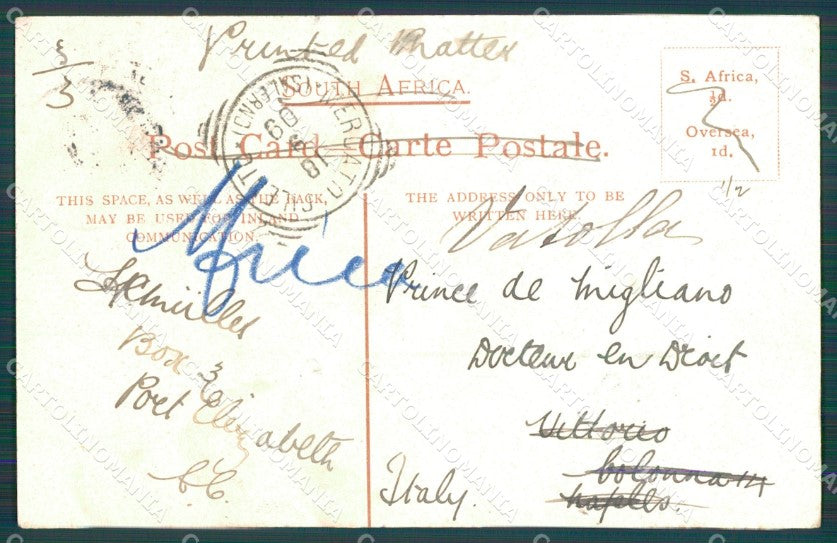 Printed Matter
3/3
SOUTH AFRICA.
Post Card—Carte Postale.
S. Africa,
½d.
Oversea,
1d.
1/2
THIS SPACE, AS WELL AS THE BACK,
MAY BE USED FOR INLAND
COMMUNICATION.
THE ADDRESS ONLY TO BE
WRITTEN HERE.
(SALERNO)
18
09
Africa
Vatolla
Prince de Migliano
Docteur en Droit
Vittorio
Colonna 14
Naples.
Italy.
Box 3
Port Elizabeth
C.C.
CARTOLINOMANIA